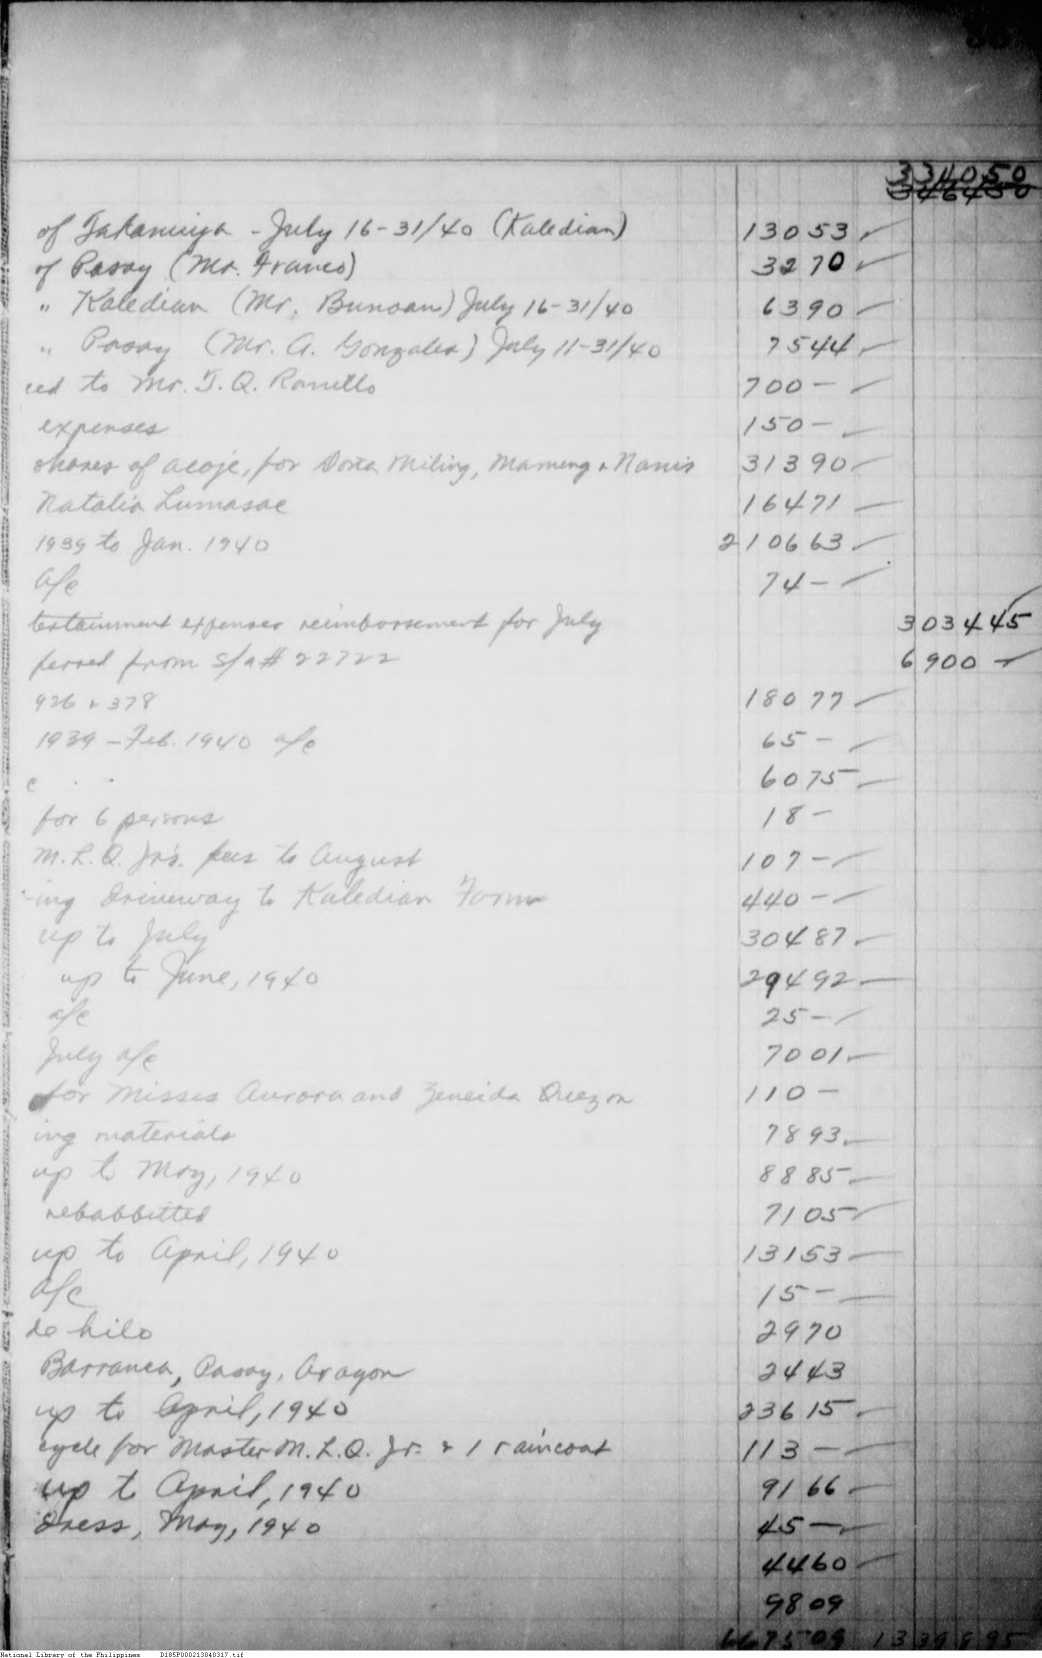 334050
346450
of Takamiya - July 16-31/40 (Kaledian) 13053
of Pasay (Mr. Franco) 3270
" Kaledian (Mr. Bunoan) July 16-31/40 6390
" Pasay (Mr. A. Gonzales) July 11-31/40 7544
ced to Mr. T. Q. 700-
expenses 150-
shares of acoje, for Miling, Mameng & Nanis 31390
Natalia Lumasac 16471
1939 to Jan. 1940 210663
a/c 74-
tertainment expenses reimbursement for July 303445
ferred from S/a # 22722 6900
926 & 378 18077
1939 - Feb. 1940 a/c 65-
c 6075
for 6 persons 18-
M.L.Q. Jr's. fees to August 107-
ing driveway to Kaledian Farm 440-
up to July 30487
up to June, 1940 29492
a/c 25-
July a/c 7001
for Misses Aurora and Zeneida Quezon 110-
ing materials 7893
up to May, 1940 8885
rebabbitted 7105
up to April, 1940 13153
a/c 15-
de hilo 2970
Barranca, Pasay, Aragon 2443
up to April, 1940 23615
cycle for Master M.L.Q. Jr. & 1 raincoat 113-
up to April, 1940 9166
dress, May, 1940 45-
4460
9809
667509 1339895
National Library of the Philippines D185P000213040317.tif